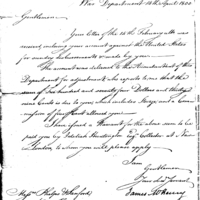 War Department 18th April 1800
Gentlemen
Your letter of the 15th February ulto was
received, enclosing your account against the United States
for sundry disbursements made by you.
The account was referred to the Accountant of this
Department for adjustment who reports to me that the
sum of Six hundred and ninety four Dollars and thirty
nine Cents is due to you, which includes
I have issued a Warrant for the above sum to be
paid you by Jedidiah Huntington Esqr Collector at New
London, to whom you will please apply.
I am
Gentlemen
Your Obed Servant
James McHenry
Messrs Phelps